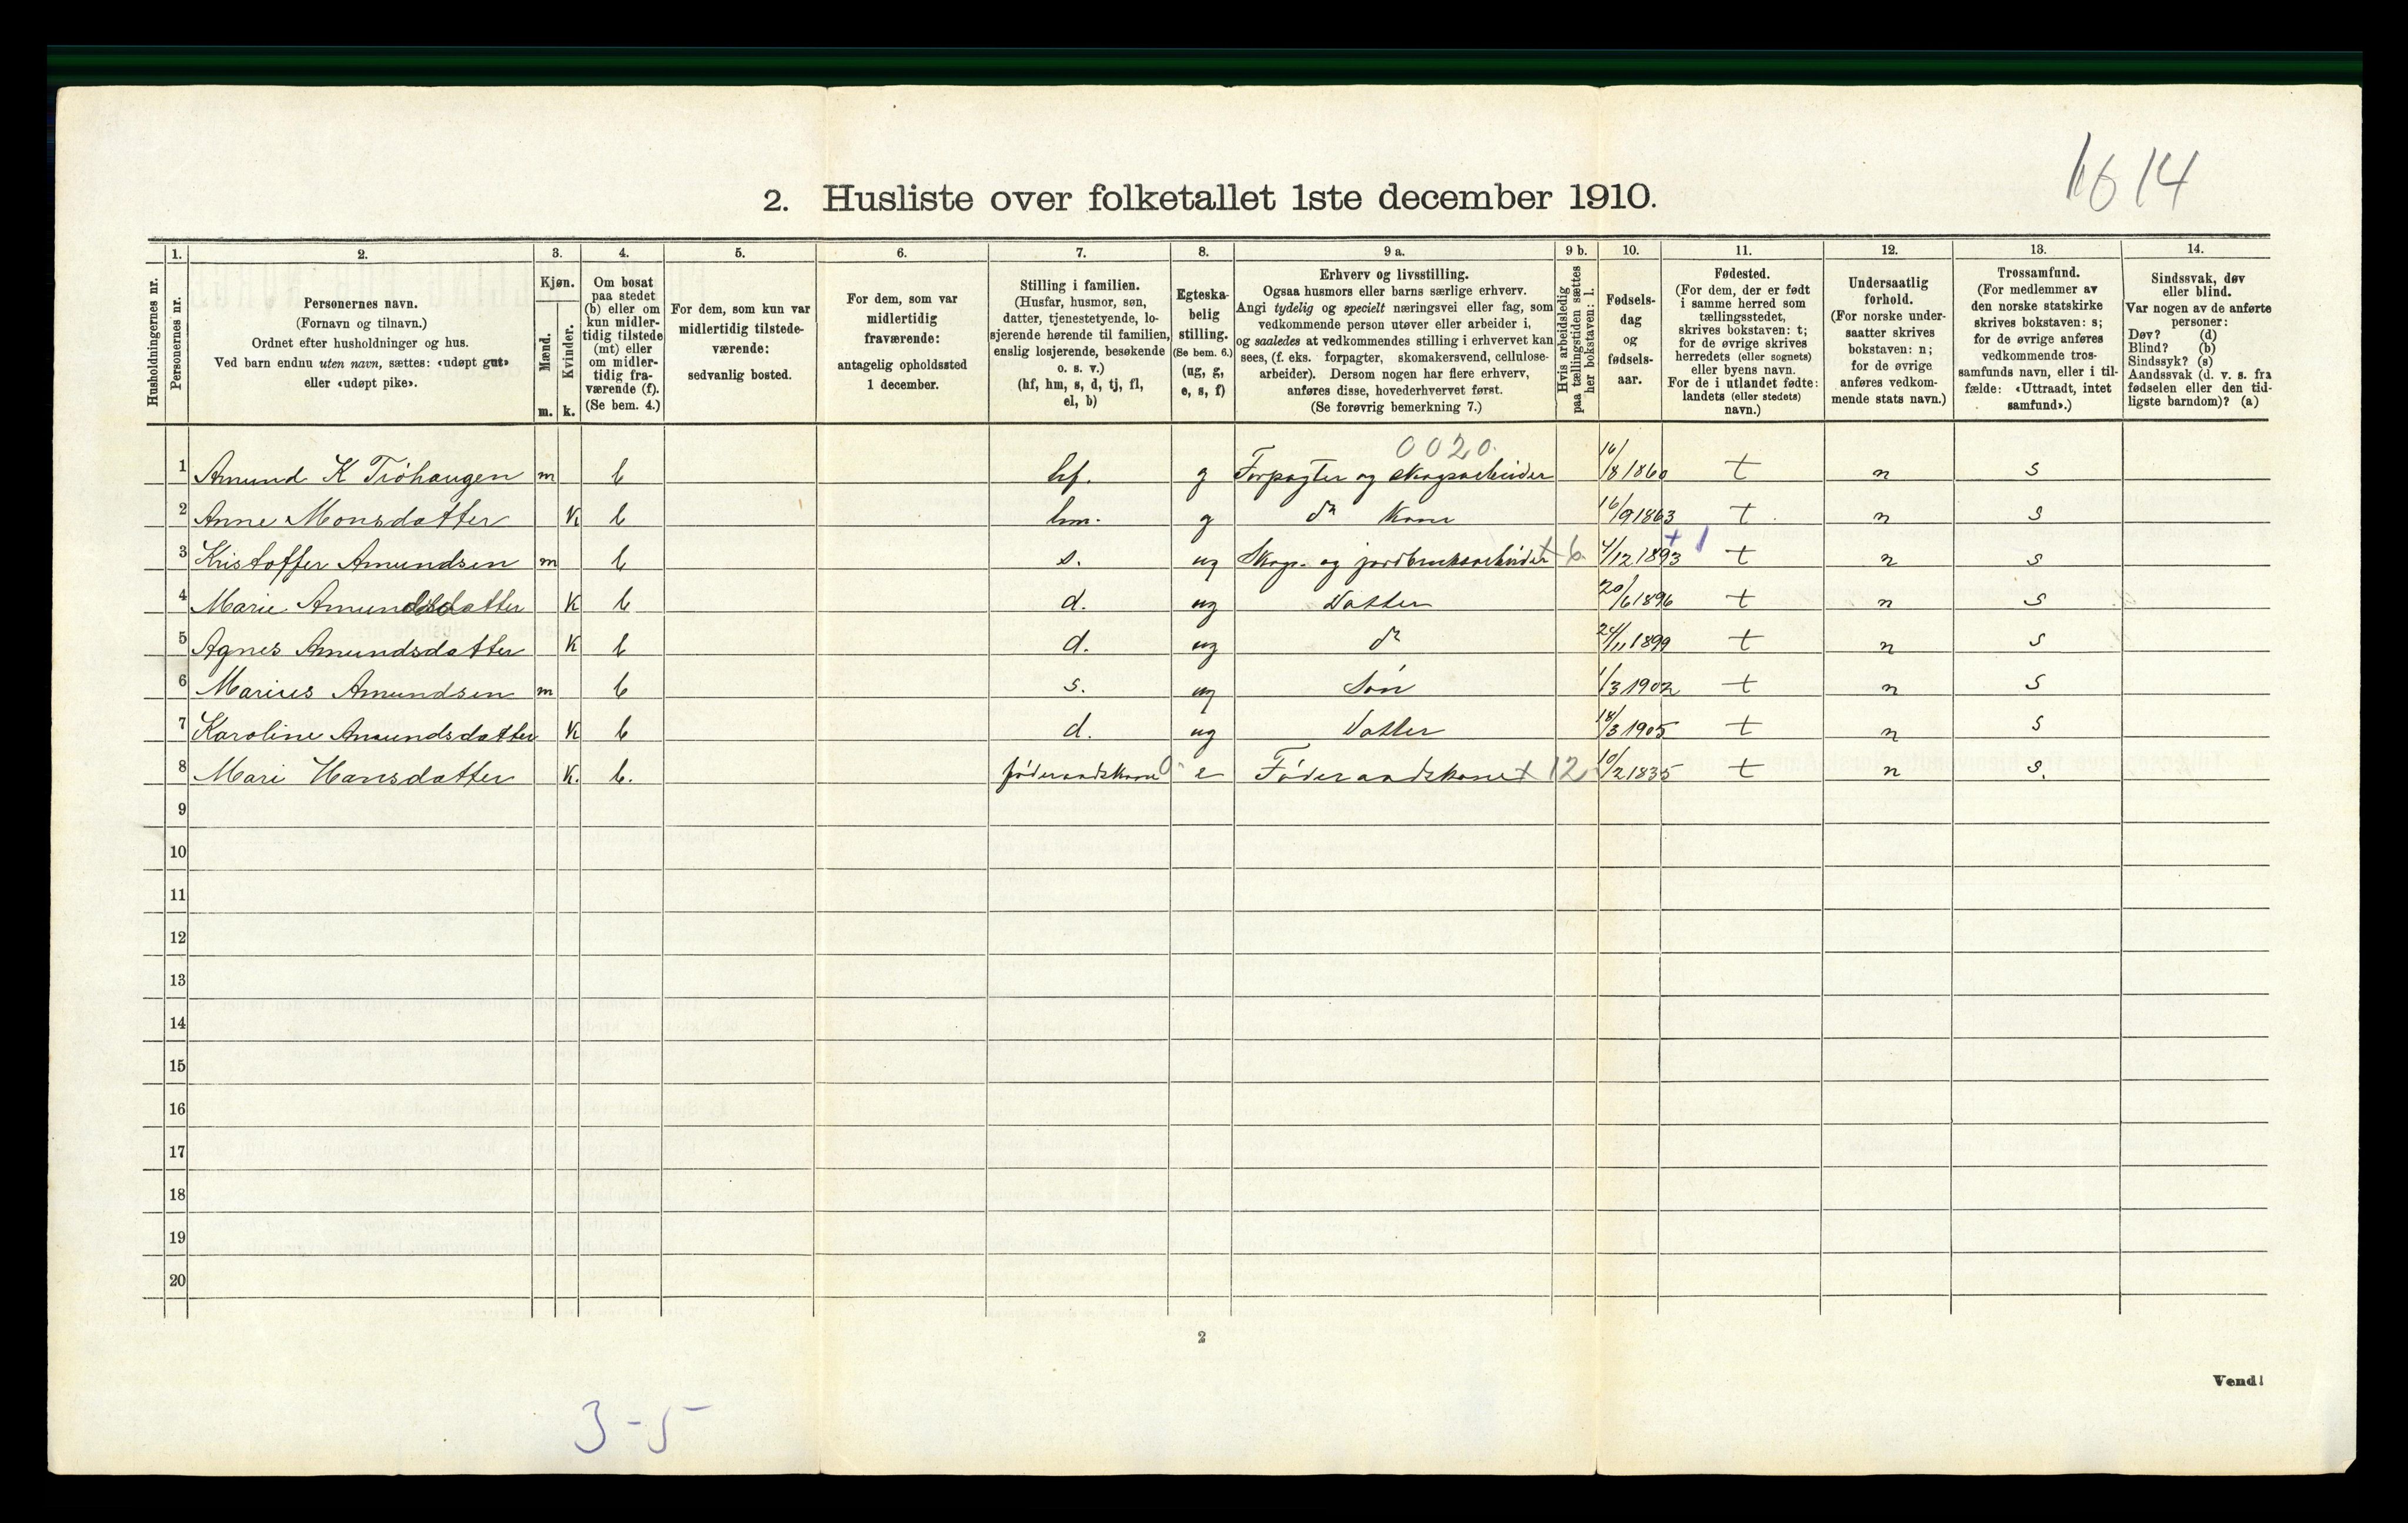 1614
2. Husliste over folketallet 1ste december 1910.
Husholdningernes nr.
1. Personernes nr.
2. Personernes navn.
(Fornavn og tilnavn.)
Ordnet efter husholdninger og hus.
Ved barn endnu uten navn, sættes: «udøpt gut»
eller «udøpt pike».
3. Kjøn.
Mænd. m.
Kvinder. k.
4. Om bosat
paa stedet
(b) eller om
kun midler-
tidig tilstede
(mt) eller
om midler-
tidig fra-
værende (f).
(Se bem. 4.)
5. For dem, som kun var
midlertidig tilstede-
værende:
sedvanlig bosted.
6. For dem, som var
midlertidig
fraværende:
antagelig opholdssted
1 december.
7. Stilling i familien.
(Husfar, husmor, søn,
datter, tjenestetyende, lo-
sjerende hørende til familien,
enslig losjerende, besøkende
o. s. v.)
(hf, hm, s, d, tj, fl,
el, b)
8. Egteska-
belig
stilling.
(Se bem. 6.)
(ug, g,
e, s, f)
9 a. Erhverv og livsstilling.
Ogsaa husmors eller barns særlige erhverv.
Angi tydelig og specielt næringsvei eller fag, som
vedkommende person utøver eller arbeider i,
og saaledes at vedkommendes stilling i erhvervet kan
sees, (f. eks. forpagter, skomakersvend, cellulose-
arbeider). Dersom nogen har flere erhverv,
anføres disse, hovederhvervet først.
(Se forøvrig bemerkning 7.)
9 b. Hvis arbeidsledig
paa tællingstiden sættes
her bokstaven: l.
10. Fødsels-
dag
og
fødsels-
aar.
11. Fødested.
(For dem, der er født
i samme herred som
tællingsstedet,
skrives bokstaven: t;
for de øvrige skrives
herredets (eller sognets)
eller byens navn.
For de i utlandet fødte:
landets (eller stedets)
navn.)
12. Undersaatlig
forhold.
(For norske under-
saatter skrives
bokstaven: n;
for de øvrige
anføres vedkom-
mende stats navn.)
13. Trossamfund.
(For medlemmer av
den norske statskirke
skrives bokstaven: s;
for de øvrige anføres
vedkommende tros-
samfunds navn, eller i til-
fælde: «Uttraadt, intet
samfund».)
14. Sindssvak, døv
eller blind.
Var nogen av de anførte
personer:
Døv? (d)
Blind? (b)
Sindssyk? (s)
Aandssvak (d. v. s. fra
fødselen eller den tid-
ligste barndom)? (a)
0020.
1 Amund K Tröhaugen m b hf. g Forpagter og skogsarbeider 16/8 1860 t n s
2 Anne Monsdatter K b hm. g do Kone 16/9 1863 t n s
3 Kristoffer Amundsen m b s. ug Skogs- og jordbruksarbeider + 6. 4/12 1893 + 1 t n s
4 Marie Amundsdatter K b d. ug Datter 20/6 1896 t n s
5 Agnes Amundsdatter K b d. ug do 24/11 1899 t n s
6 Marius Amundsen m b s. ug Sön 1/3 1902 t n s
7 Karoline Amundsdatter K b d. ug Datter 18/3 1905 t n s
8 Mari Hansdatter K. b. föderaadskone 0- e Föderaadskone + 12. 10/2 1835 t n s.
9
10
11
12
13
14
15
16
17
18
19
20
2
Vend!
3-5